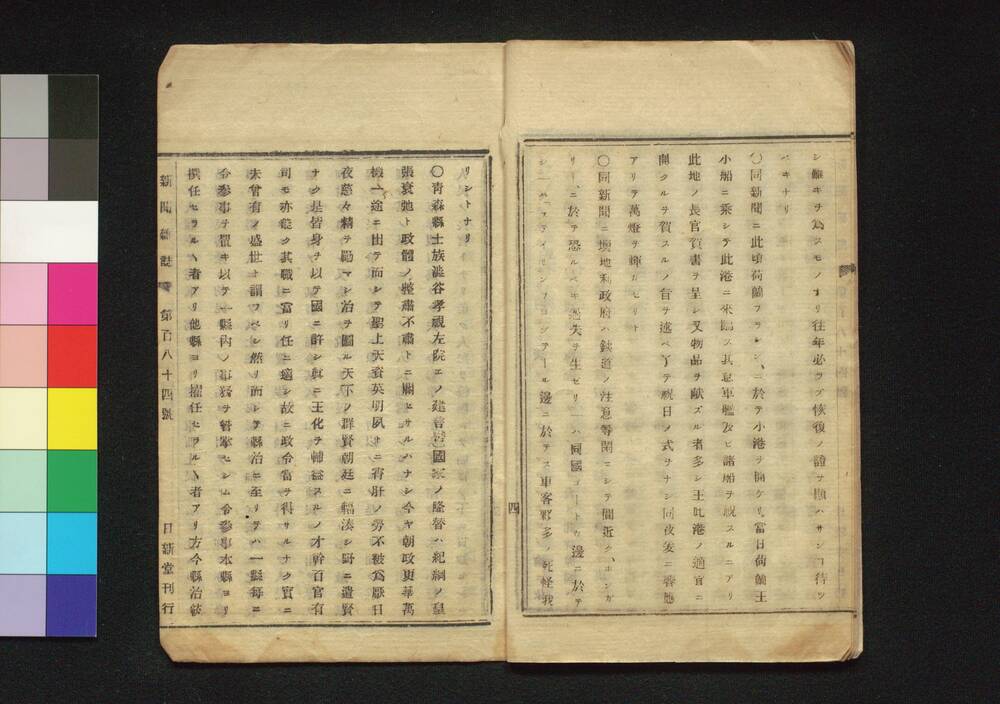 シ難キヲ為スモノナリ往年必ラズ恢復ノ證ヲ顯ハサンコ待ツ
ベキナリ
〇同新聞ニ此頃荷蘭フラシン、ニ於テ小港ヲ開ケリ當日荷蘭王
小船ニ乗シテ此港ニ來臨ス其息軍艦及ビ諸船ヲ祝スルニアリ
此地ノ長官賀書ヲ呈シ又物品ヲ献ズル者多シ王此港ノ適宜ニ
開クルヲ賀スルノ旨ヲ述ベ了テ祝日ノ式ヲナシ同夜宴ニ響應
アリテ萬燈ヲ輝カセリト
〇同新聞ニ墺地利政府ハ鉄道ノ注意等閑ニシテ間近ク
リー、ニ於テ恐ルベキ過失ヲ生ゼリ一ハ同國ゴートウ邊ニ於テ
シ一ハ アール邊ニ於テス車客夥多ノ死怪我
四
リシトナリ
〇青森縣士族澁谷孝視左院エノ建言ニ國家ノ隆替ハ紀綱ノ皇
張衰弛ト政體ノ整肅不肅トニ關セサルハナシ今ヤ朝政更革萬
機一途ニ出テ而シテ聖上天資英明夙トニ宵肝ノ勞不被為厭日
夜慈々精ヲ勵マシ治ヲ圖ル天下ノ群賢朝廷ニ輻湊シ野ニ遺賢
ナク是皆身ヲ以テ國ニ許シ眞ニ王化ヲ輔益スルノ才幹百官有
司モ亦能ク其職ニ當リ任ニ適シ故ニ政令當ヲ得サルナク實ニ
未曾有ノ盛世ト謂フベシ然リ而シテ縣治ニ至リテハ一縣毎ニ
令參事ヲ置キ以テ一縣内ノ事務ヲ督掌セシム令參事本縣ヨリ
撰任セラルヽ者アリ他縣ヨリ擢任セラルヽ者アリ方今縣治錢
新聞雜誌 第百八十四號 日新堂刊行